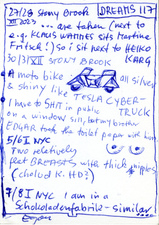 27/28 Stony Brook DREAMS 117
VII 2023 ... are taken (next to
e.g. KLAUS WANNES sits Martine
Fritsch!) so i sit next to HEIKO
KARG
30/31 VII STONY BROOK
A moto bike all silver
& shiny like TESLA CYBER-
TRUCK
I have to SHIT in public
on a window sill, but my brother
EDGAR took the toilet paper with him
5/6 I NYC
Two relatively
flat BREASTS with thick nipples
(cholud K. HD?)
7/8 I NYC I am in a
Schokoladenfabrik-similar